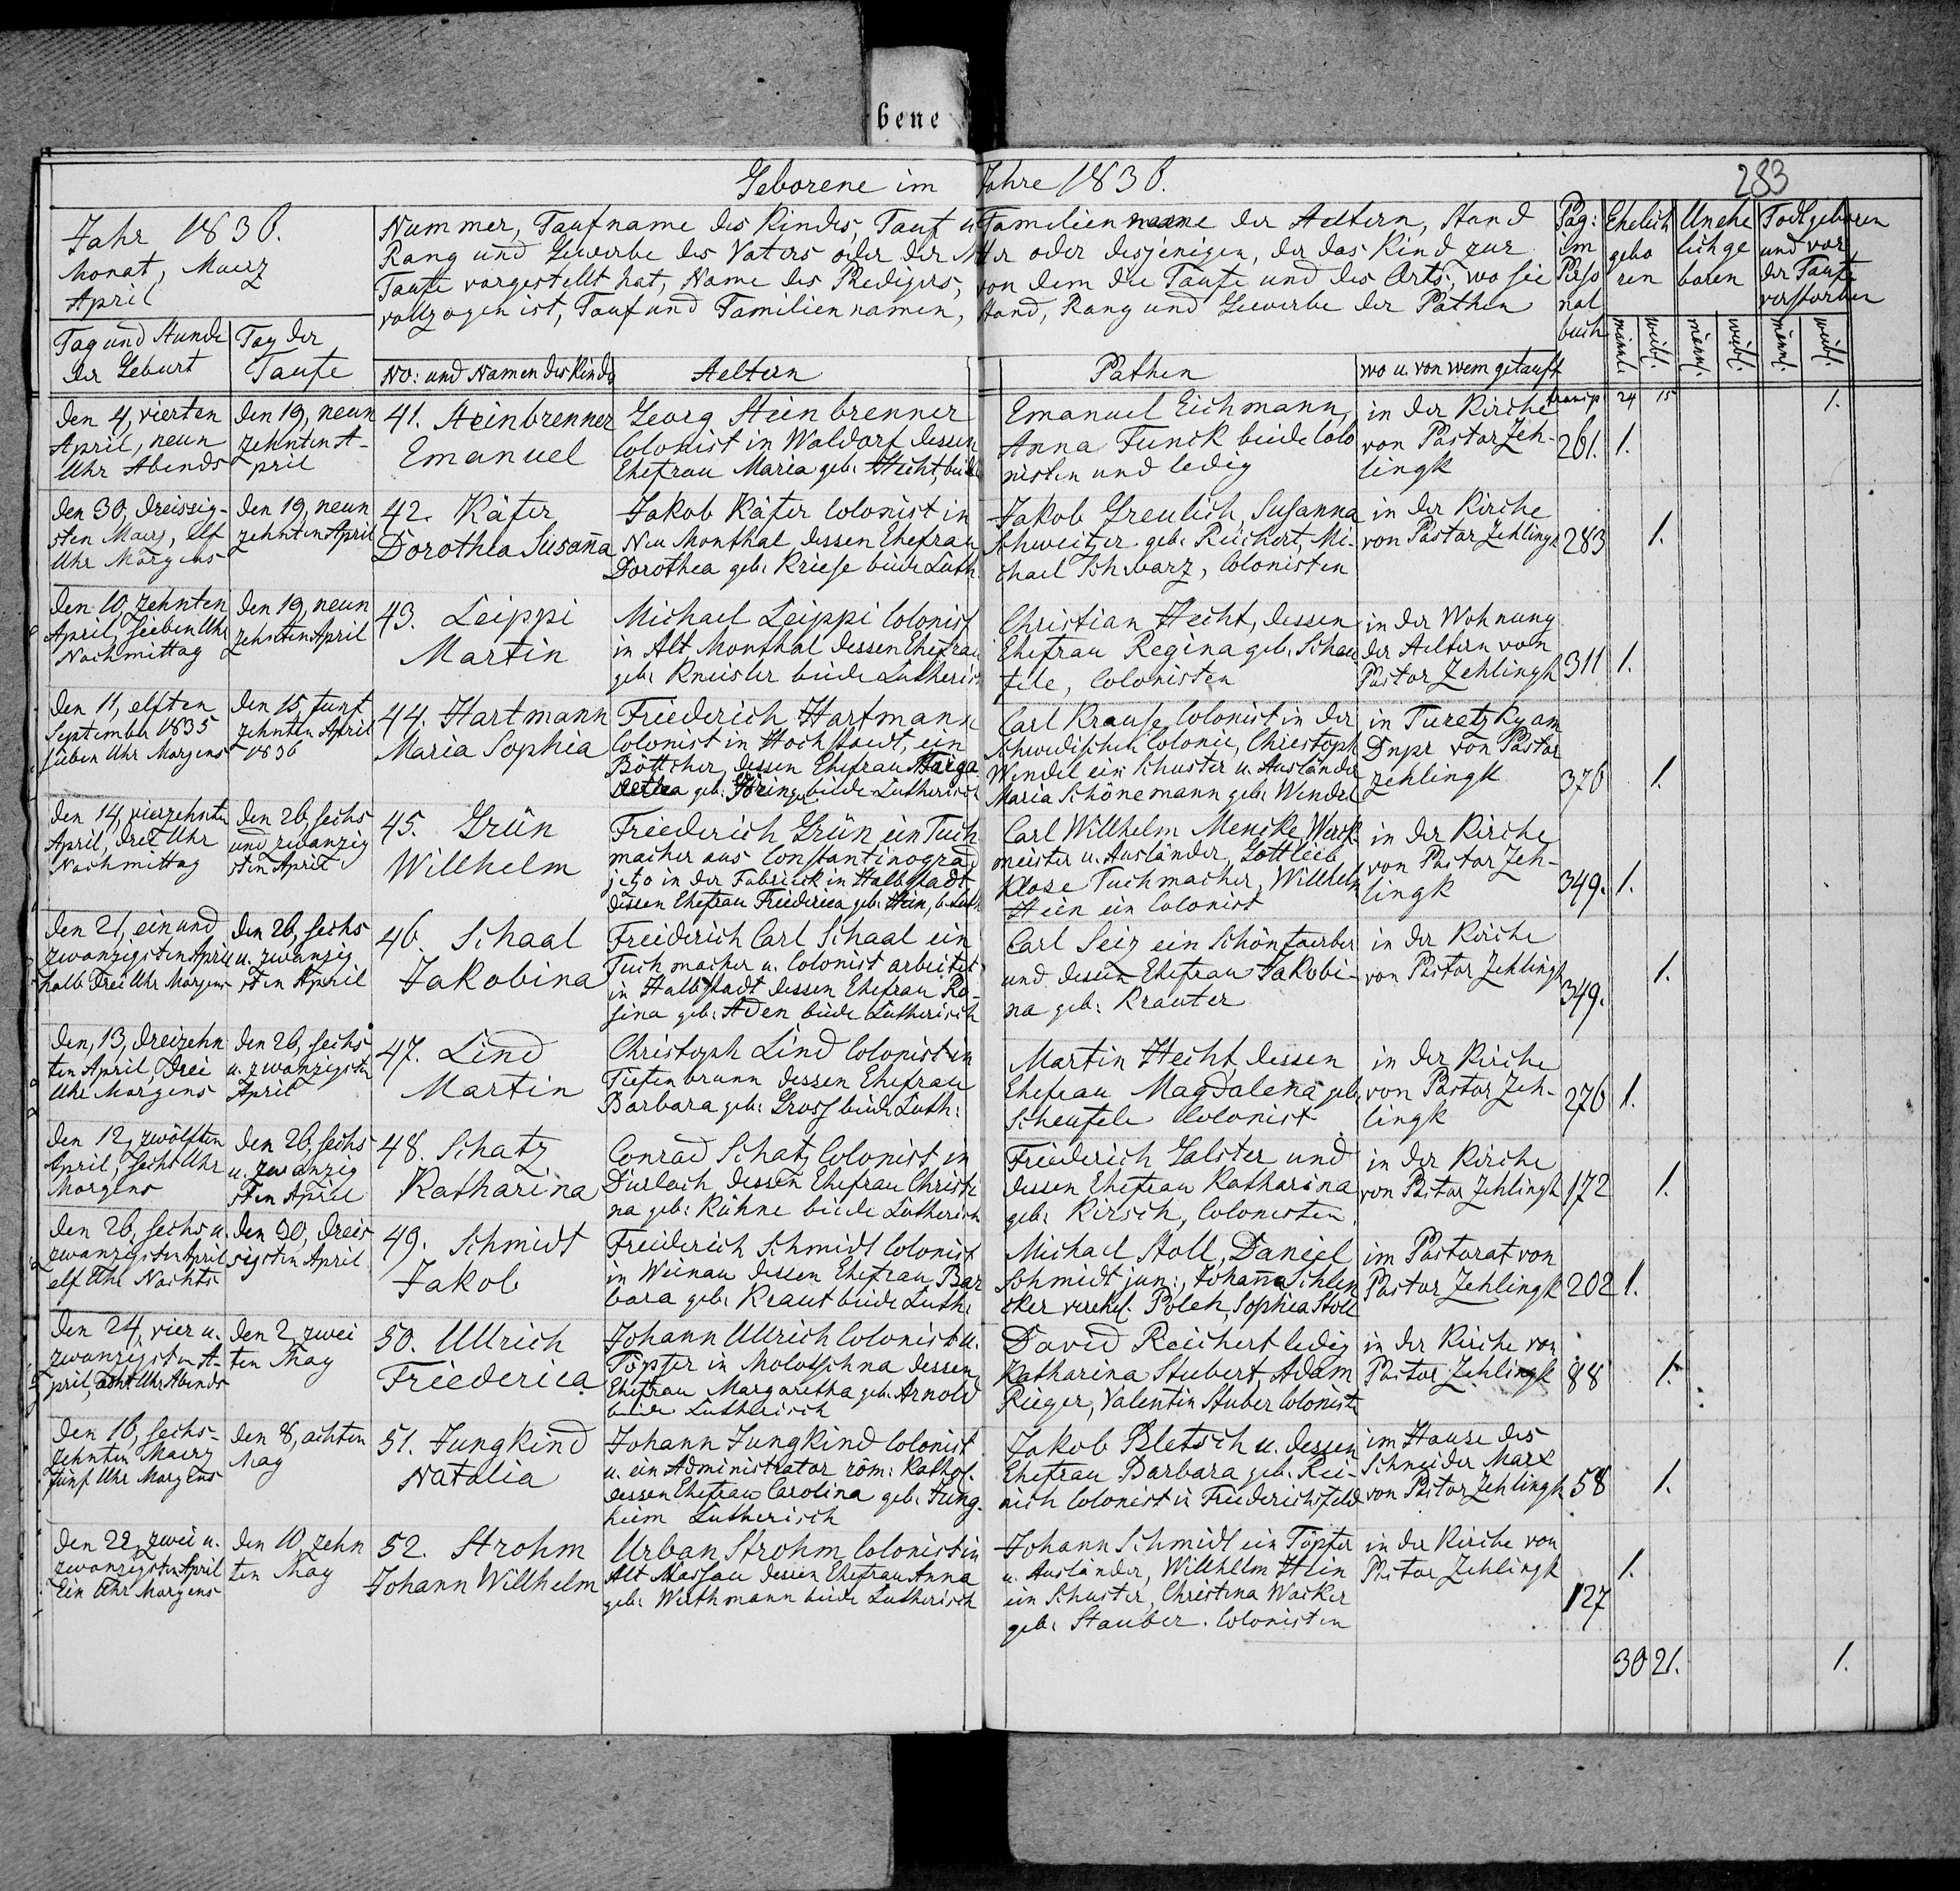 bene
Geborene im Jahre 1836.
283
Jahr 1836.
Monat, Maerz
April
Nummer, Taufname des Kindes, Tauf u Familien name der Aeltern, Stand
Rang und Gewerbe des Vaters oder der Mtr oder desjenigen, der das Kind zur
Taufe vorgestellt hat, Name des Predigers, von dem die Taufe und des Orts, wo sie
vollzogen ist, Tauf und Familien namen, Stand, Rang und Gewerbe der Pathen
Pag:
im
Perso
nal
buch
Ehelich
gebo
ren
Unehe
lich ge
boren
Todtgeboren
und vor
der Taufe
verstorben
Tag und Stunde
der Geburt
Tag der
Taufe
No: und Namen des Kindes
Aeltern
Pathen
wo u. von wem getauft
männl.
weibl.
männl.
weibl.
männl.
weibl.
transp 24 15 1.
den 4, vierten
April, neun
Uhr Abends
den 19, neun
zehnten A-
pril
41. Steinbrenner
Emanuel
Georg Steinbrenner
Colonist in Waldorf dessen
Ehefrau Maria geb: Hecht, beide
Emanuel Eichmann,
Anna Funck beide Colo
nisten und ledig
in der Kirche
von Pastor Zeh-
lingk
261. 1.
den 30, dreissig-
sten Maerz, elf
Uhr Morgens
den 19, neun
zehnten April
42. Käfer
Dorothea Susana
Jakob Käfer Colonist in
Neu Monthal dessen Ehefrau
Dorothea geb: Kriese beide Luth.
Jakob Greulich, Susanna
Schweitzer geb: Reichert, Mi-
chael Schwarz, Colonisten
in der Kirche
von Pastor Zehlingk
283 1.
den 10, zehnten
April, sieben Uhr
Nachmittag
den 19, neun
zehnten April
43. Leippi
Martin
Michael Leippi Colonist
in Alt Monthal dessen Ehefrau
geb: Kneisler beide Lutherisch
Christian Hecht, dessen
Ehefrau Regina geb: Schau
fele, Colonisten
in der Wohnung
der Aeltern von
Pastor Zehlingk
311 1.
den 11, elften
September 1835
sieben Uhr Morgens
den 15, funf
zehnten April
1836
44. Hartmann
Maria Sophia
Friederich Hartmann
Colonist in Hochstaedt, ein
Böttcher, dessen Ehefrau Marga
retha geb: Göringer beide Lutherisch
Carl Krause Colonist in der
Schwedischen Colonie, Christoph
Wendel ein Schuster u. Ausländer
Maria Schönemann geb: Wendel
in Turetzky am
Dnpr von Pastor
Zehlingk
376 1.
den 14, vierzehnten
April, drei Uhr
Nachmittag
den 26, sechs
und zwanzig
sten April
45. Grün
Willhelm
Friederich Grün ein Tuch
macher aus Constantinograd
jetzo in der Fabrieck in Halbstadt
dessen Ehefrau Friederica geb: Hein, b. Luth
Carl Willhelm Mencke, Werk-
meister u. Ausländer, Gottlieb
Klose Tuchmacher, Willhelm
Hein ein Colonist
in der Kirche
von Pastor Zeh-
lingk
349. 1.
den 21, ein und
zwanzigsten April
halb drei Uhr Morgens
den 26, sechs
u. zwanzig
sten April
46. Schaal
Jakobina
Freiderich Carl Schaal ein
Tuchmacher u. Colonist arbeitet
in Halbstadt dessen Ehefrau Ro-
sina geb: Aden beide Lutherisch
Carl Seiz ein Schönfaerber
und dessen Ehefrau Jakobi-
na geb: Krauter
in der Kirche
von Pastor Zehlingk
349. 1.
den, 13, dreizehn
ten April, drei
Uhr Morgens
den 26, sechs
u. zwanzigsten
April
47. Lind
Martin
Christoph Lind Colonist in
Tiefenbrunn dessen Ehefrau
Barbara geb: Gross beide Luth:
Martin Hecht, dessen
Ehefrau Magdalena geb,
Scheufele Colonist
in der Kirche
von Pastor Zeh-
lingk
276 1.
den 12, zwölften
April, sechs Uhr
Morgens
den 26, sechs
u. zwanzig
sten April
48. Schatz
Katharina
Conrad Schatz Colonist in
Durlach dessen Ehefrau Christi
na geb: Kühne beide Lutherisch
Friederich Galster und
dessen Ehefrau Katharina
geb: Kirsch, Colonisten.
in der Kirche
von Pastor Zehlingk
172 1.
den 26, sechs u.
zwanzigsten April
elf Uhr Nachts
den 30, dreis
sigsten April
49. Schmidt
Jakob
Freiderich Schmidt Colonist
in Weinau dessen Ehefrau Bar
bara geb: Kraut beide Luth:
Michael Stoll, Daniel
Schmidt jun:, Johana Schlen
cker verehel. Polek, Sophia Stoll
im Pastorat von
Pastor Zehlingk
202 1.
den 24, vier u.
zwanzigsten A-
pril, acht Uhr Abends
den 2, zwei
ten May
50. Ullrich
Friederica
Johann Ullrich Colonist u.
Töpfer in Molotschna dessen
Ehefrau Margaretha geb: Arnold
beide Lutherisch
David Reichert ledig
Katharina Stubert, Adam
Rieger, Valentin Stuber Coloniste
in der Kirche von
Pastor Zehlingk
88 1.
den 16, sechs-
zehnten Maerz
fünf Uhr Morgens
den 8, achten
May
51. Jungkind
Natalia
Johann Jungkind Colonist
u. ein Administrator röm: Kathol.
dessen Ehefrau Carolina geb: Jung-
heim Lutherisch
Jakob Bletsch u. dessen
Ehefrau Barbara geb: Rei-
nich Colonist in Friederichsfeld
im Hause des
Schneider Marx
von Pastor Zehlingk
58 1.
den 22, zwei u.
zwanzigsten April
Ein Uhr Morgens
den 10, zehn
ten May
52. Strohm
Johann Willhelm
Urban Strohm Colonist in
Alt Nassau dessen Ehefrau Anna
geb: Werthmann beide Lutherisch
Johann Schmidt ein Töpfer
u. Ausländer, Willhelm Hein
ein Schuster, Christina Wacker
geb: Stauber. Colonisten
in der Kirche von
Pastor Zehlingk
127 1.
30 21. 1.